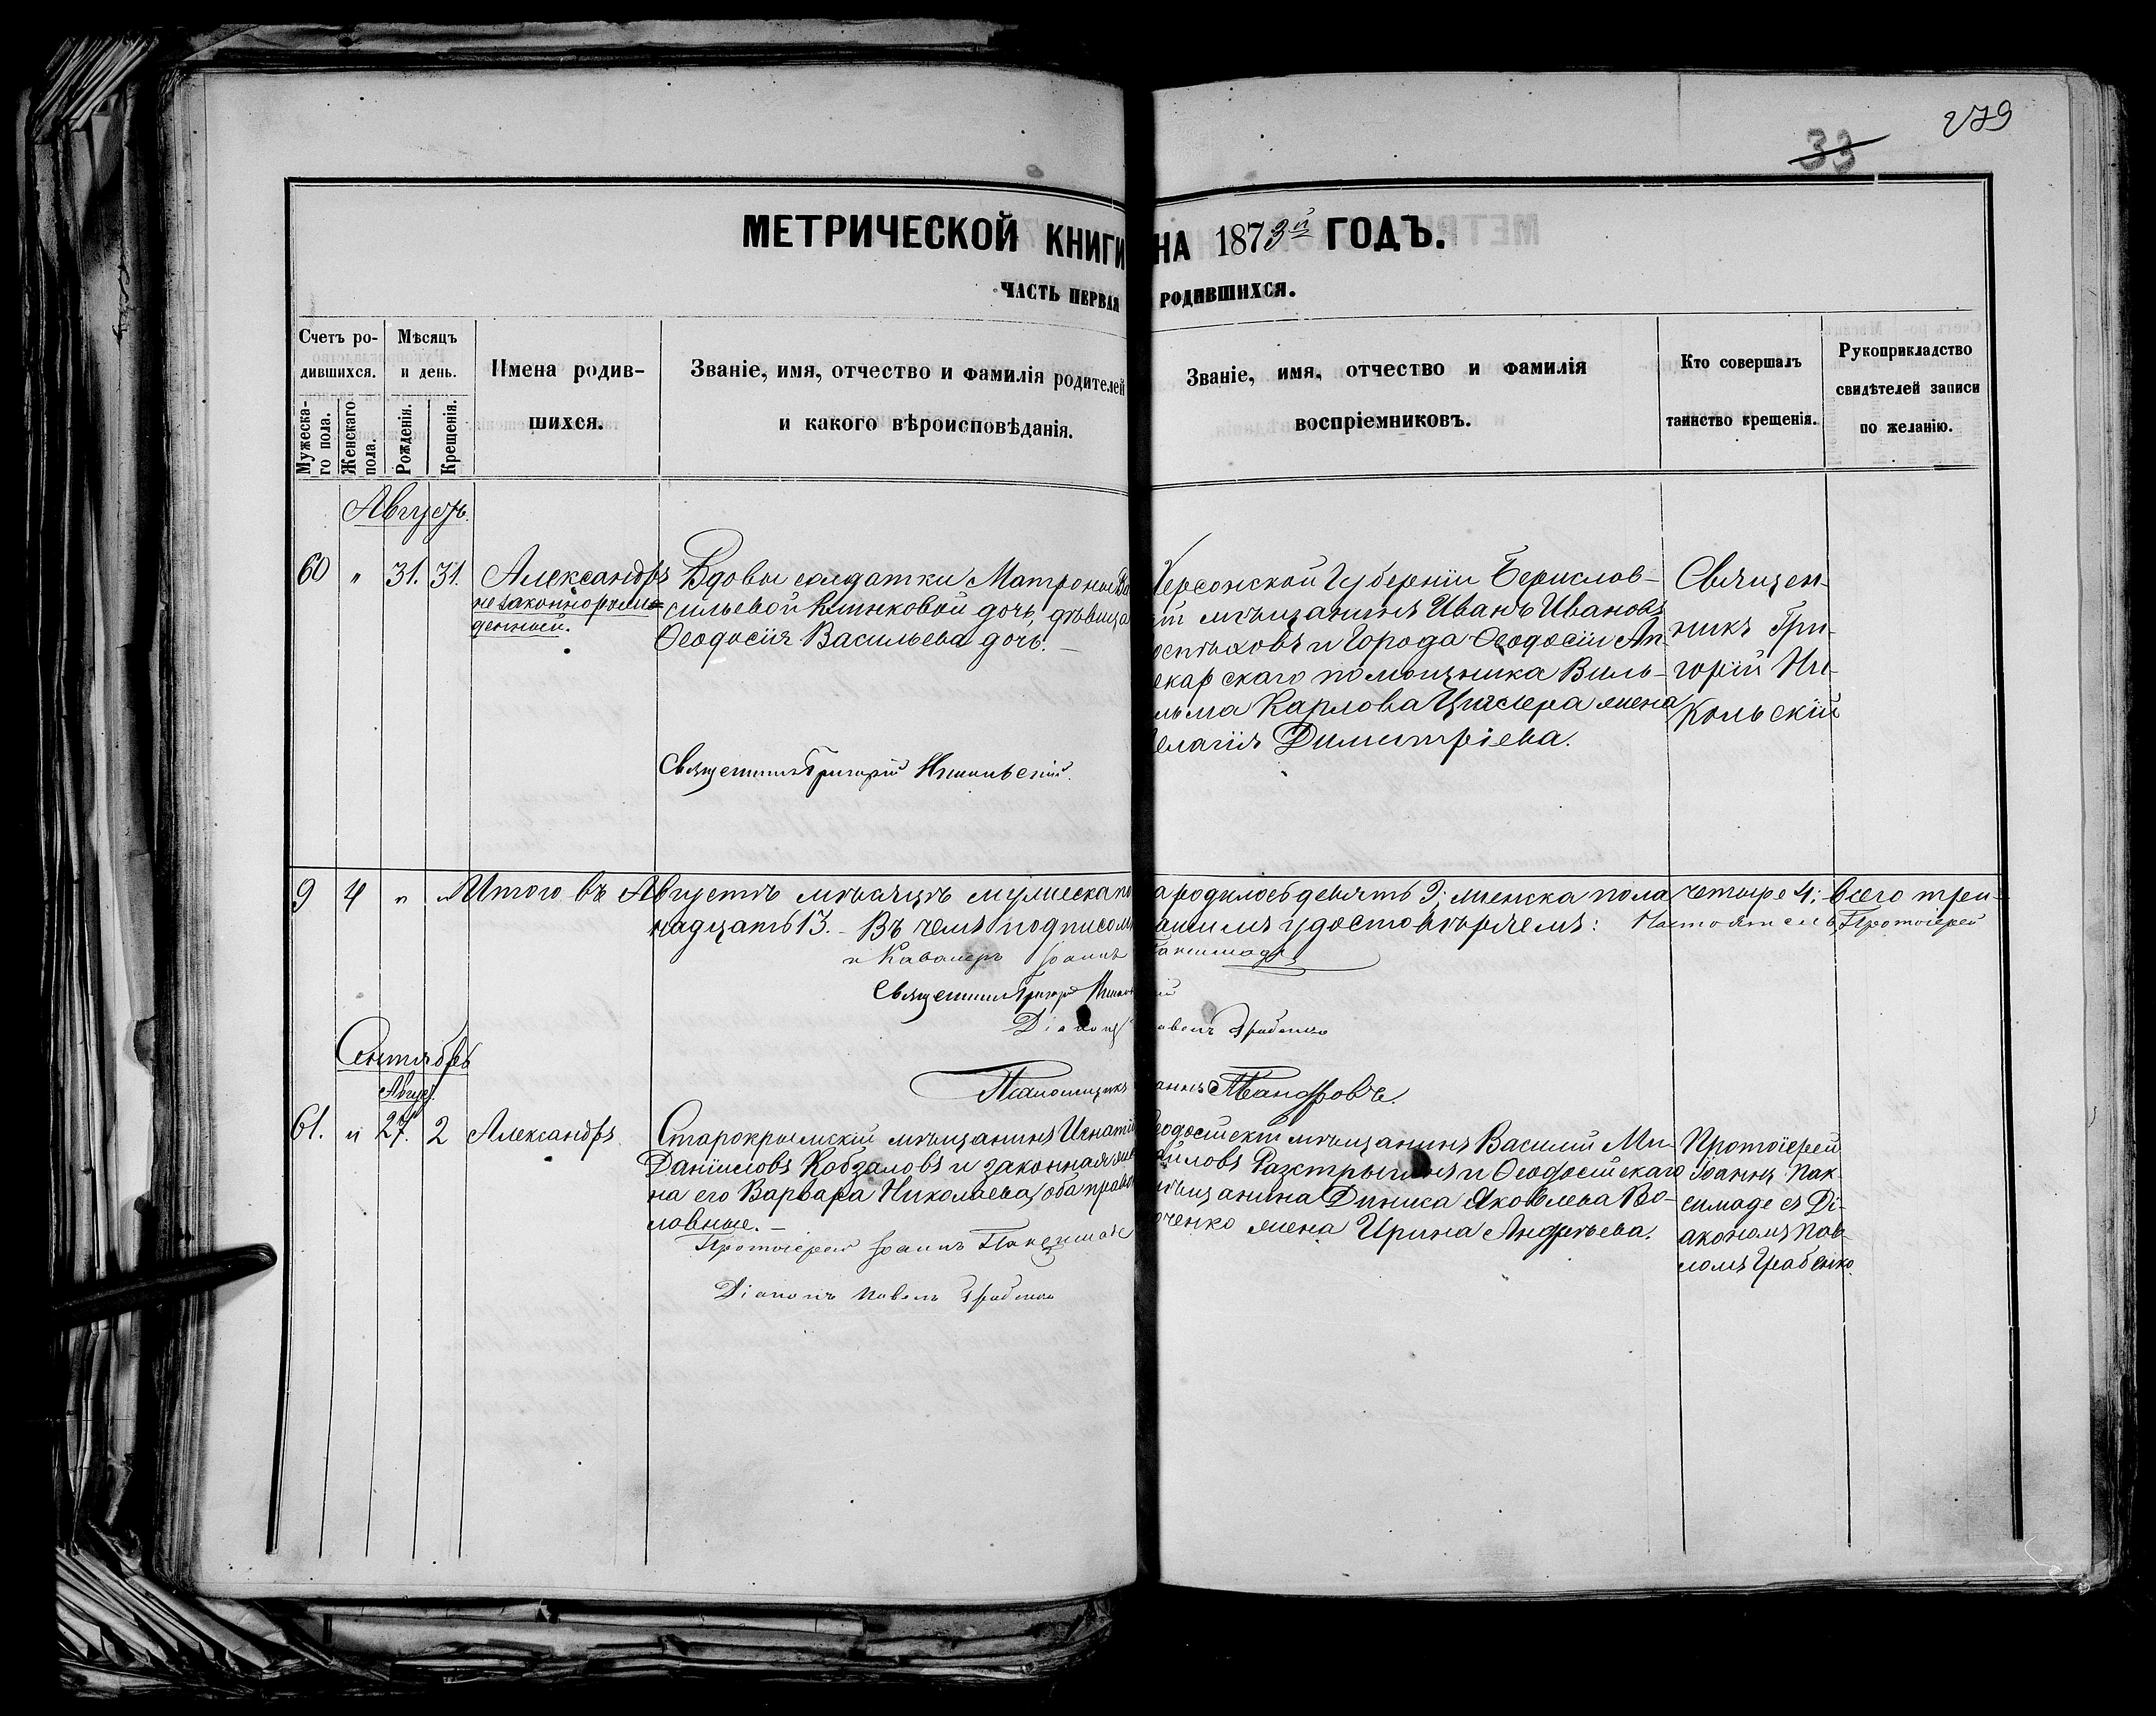 279
33
МЕТРИЧЕСКОЙ КНИГИ НА 1873й ГОДЪ.
ЧАСТЬ ПЕРВАЯ РОДИВШИХСЯ.
Счетъ ро-
дившихся.
Мужеска-
го пола.
Женскаго
пола.
Мѣсяцъ
и день.
Рожденія.
Крещенія.
Имена родив-
шихся.
Званіе, имя, отчество и фамилія родителей
и какого вѣроисповѣданія.
Званіе, имя, отчество и фамилія
воспріемниковъ.
Кто совершалъ
таинство крещенія.
Рукоприкладство
свидѣтелей записи
по желанію.
Августъ.
60 " 31. 31.
Александръ
незаконнорож-
денный.
Вдовы солдатки Матроны Ва
сильевой Клинковой дочь, дѣвица
Ѳеодосія Васильева дочь.
Священникъ Григорій Никольскій.
Херсонской Губерніи Берислов-
ій мѣщанинъ Иванъ Ивановъ
и Города Ѳеодосіи Ап-
екарскаго помощника Виль-
ьма Карлова жена
елагія Димитріева.
Священ-
никъ Гри-
горій Ни-
кольскій
9 4 " " Итого въ Августѣ мѣсяцѣ мужеска по а родилось девять 9; женска пола четыре 4; всего три-
надцать 13. – Въ чемъ подписомъ ашимъ удостовѣряемъ: Настоятель Протоіерей
и Кавалеръ Іоаннъ Пакимаде
Священникъ Григорій Николь ій
Діаконъ авелъ Грабенко
Псаломщикъ аннъ
Сентябрь
Август.
61. " 27. 2
Александръ
Старокрымскій мѣщанинъ Игнатій
Даніиловъ Кобзаловъ и законная же
на его Варвара Николаева, оба право
лавные. –
Протоіерей Іоаннъ Паксимаде
Діаконъ Павелъ Грабенко
еодосійскій мѣщанинъ Василій Ми-
айловъ и Ѳеодосійскаго
ѣщанина Диниса Яковлева Во-
оченко жена Ирина Андреева.
Протоіерей
Іоаннъ Пак-
симаде съ Ді-
акономъ Пав-
ломъ Грабенко.